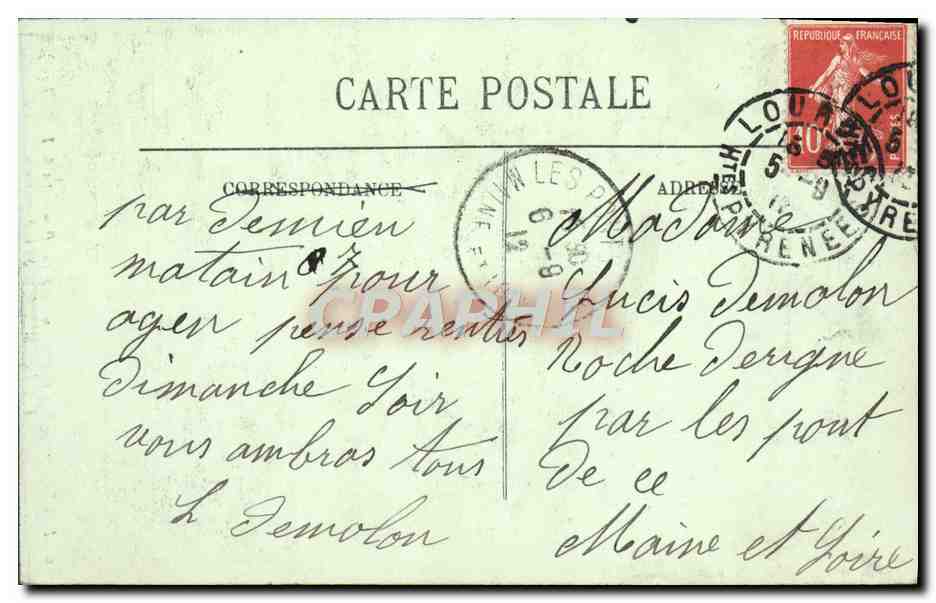 CARTE POSTALE
REPUBLIQUE FRANÇAISE
10
POSTES
CORRESPONDANCE
ADRESSE
LOU
16
5 -9
HTES PYRENEES
LES P
6 -9
12
par Demien
matain pour
agen pense rentres
Dimanche Soir
vous ambras tous
L Demolon
Madame
Lucis Demolon
Roche Derigne
par les pont
De ce
Maine et Loire
CPAPHIL